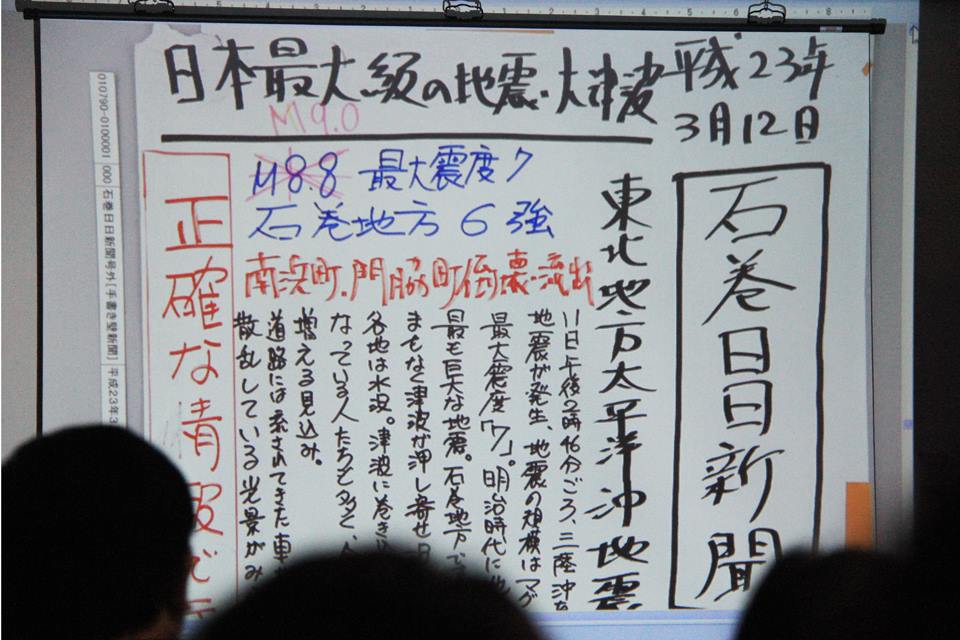 日本最大級の地震・大津波
平成23年
3月12日
石巻日日新聞
東北地方太平洋沖地震
M9.0
M8.8 最大震度7
石巻地方 6強
南浜町、門脇町倒壊・流出
11日午後2時46分ごろ、三陸沖を
地震が発生、地震の規模はマグ
最大震度「7」。明治時代に
最も巨大な地震。石巻地方で
まもなく津波が押し寄せ
各地は水没。津波に巻き
なっている人たちも多く、人
増える見込み。
道路には流されてきた車
散乱している光景がみ
正確な情報で
010790-0100001 000 石巻日日新聞号外[手書き壁新聞] 平成23年3